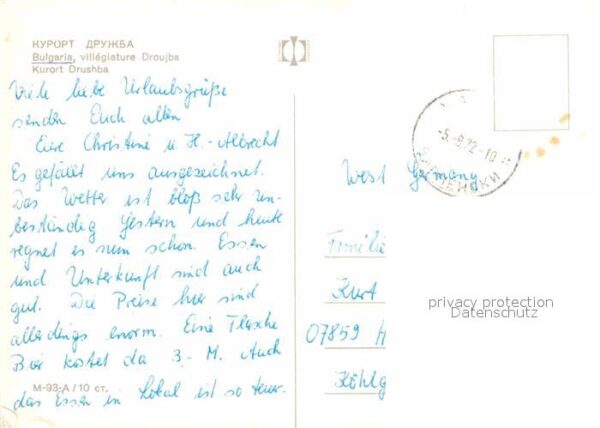 КУРОРТ ДРУЖБА
Bulgaria, villégiature Droujba
Kurort Drushba
Viele liebe Urlaubsgrüße
senden Euch allen
Eure Christine u. H.-Albrecht
Es gefällt uns ausgezeichnet.
Das Wetter ist bloß sehr un-
beständig. Gestern und heute
regnet es nun schon. Essen
und Unterkunft sind auch
gut. Die Preise hier sind
allerdings enorm. Eine Flasche
Bier kostet da 3.- M. Auch
das Essen im Lokal ist so teuer.
М-93-А/10 ст.
-5.-8.72-10
West Germany
Familie
Kurt
07859 H
Köhlg
privacy protection
Datenschutz